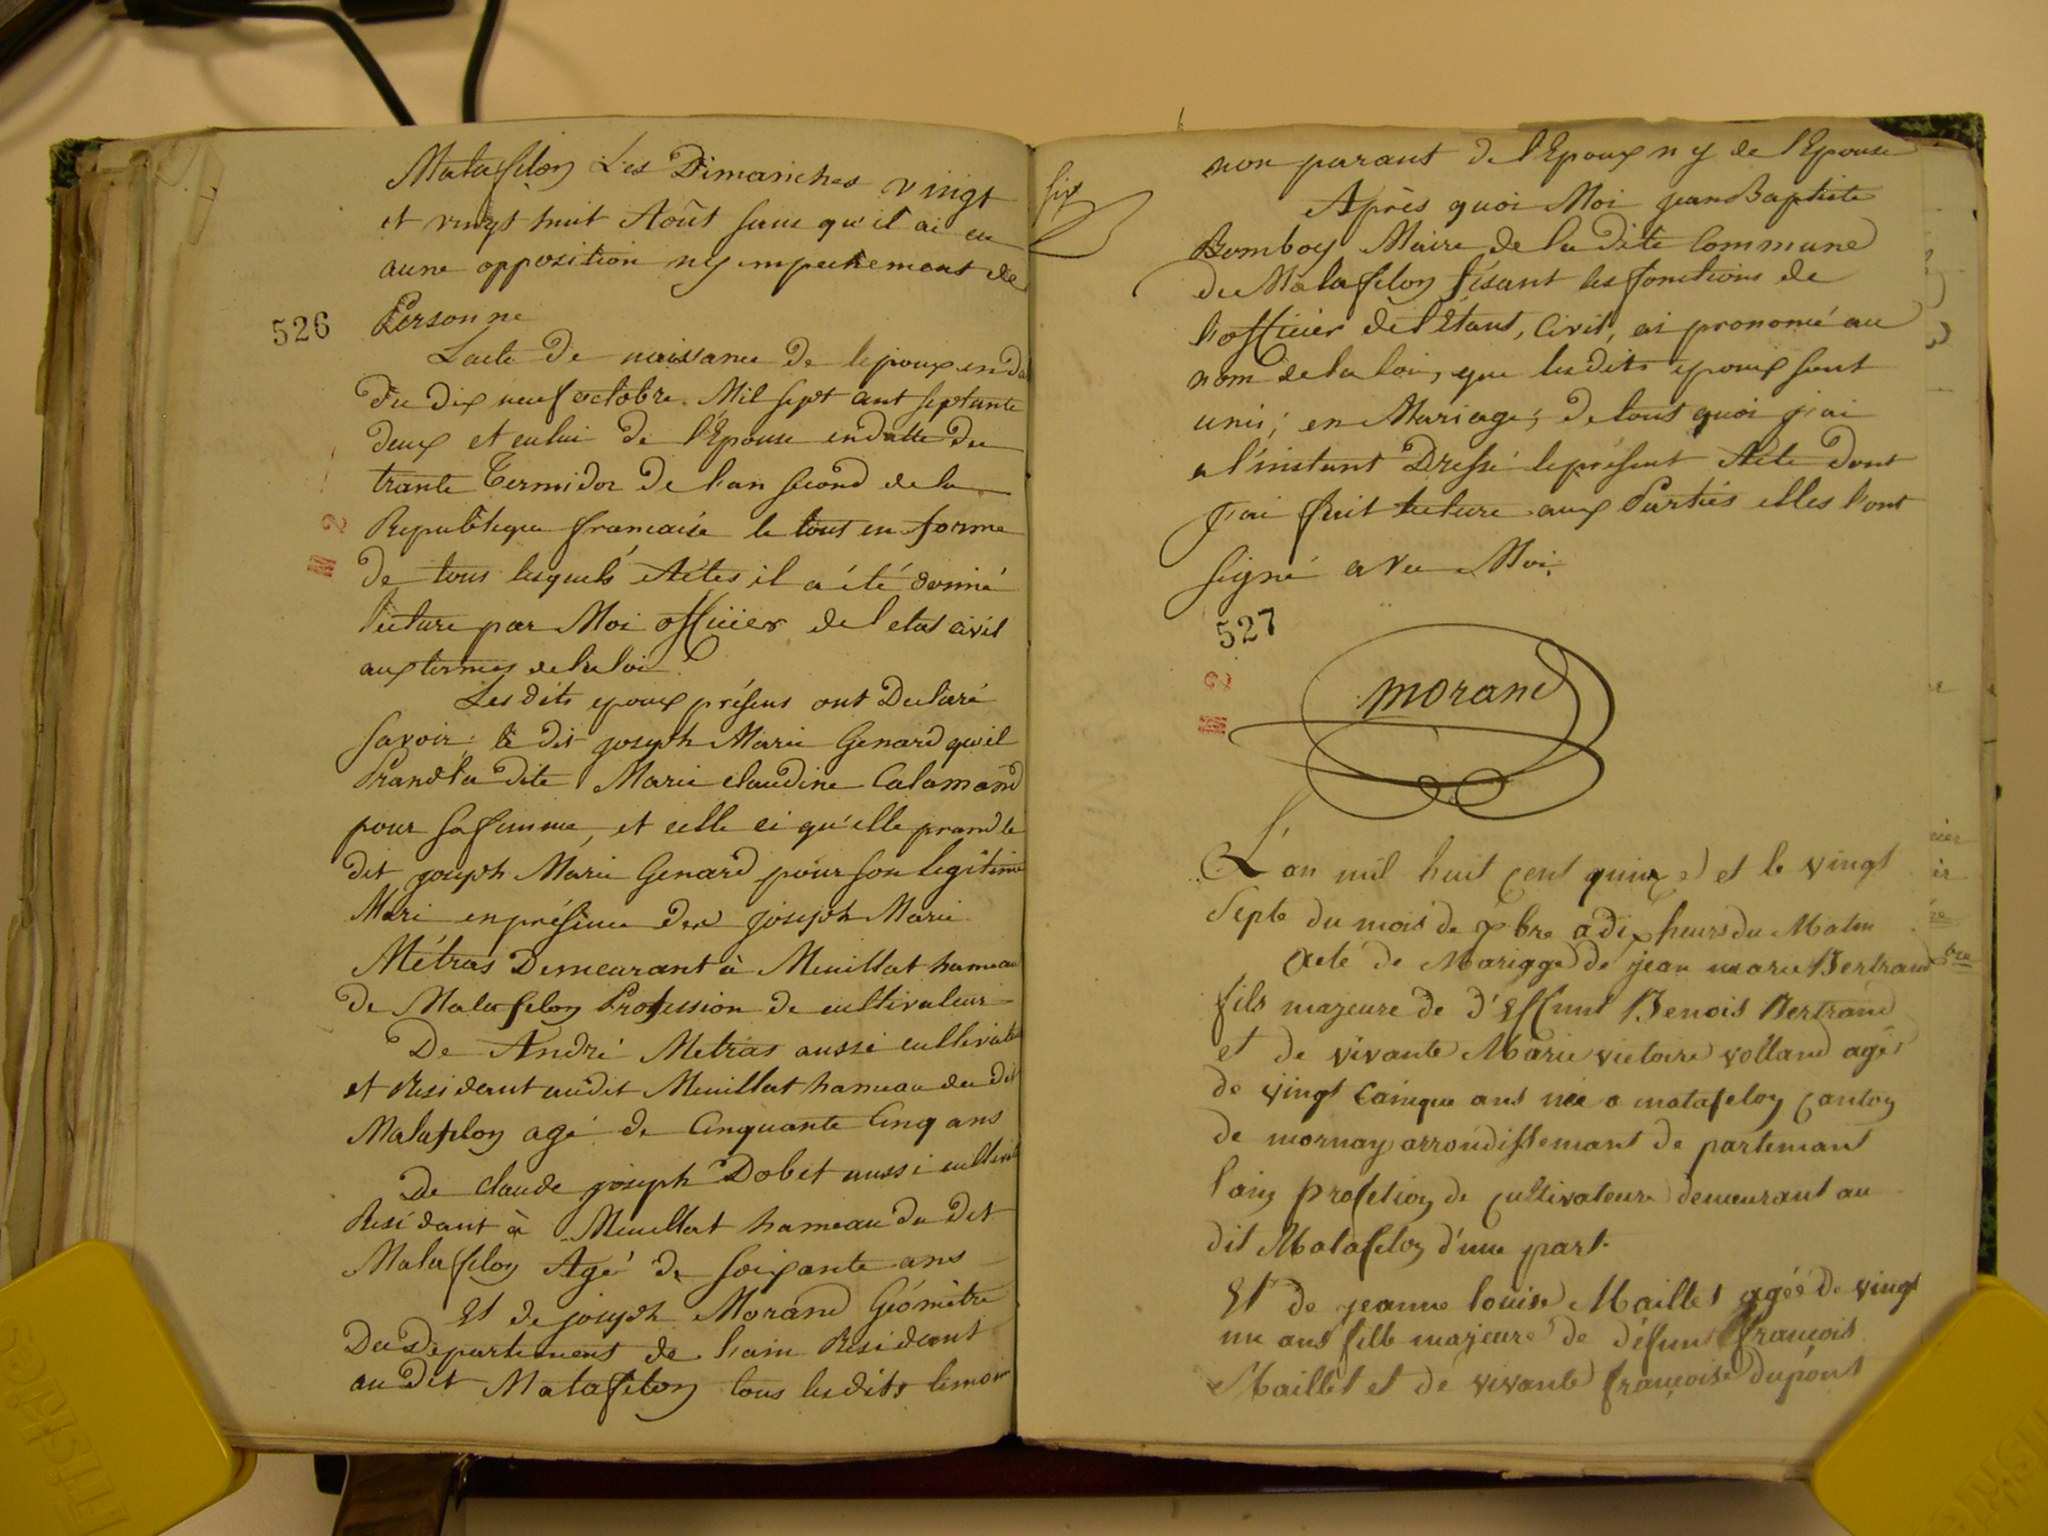 Matafelon Les Dimanches vingt
et vingt huit Août sans qu'il ai eu
aune opposition ny empechement de
Personne
526
Lacte de naissance de lepoux en da
du dix neuf octobre Mil sept cent septante
deux et celui de l'Epouse en datte du
trante Termidor de l'an second de la
Republique francaise le tout en forme
De tous lesquels Actes il a été donné
lecture par Moi officier de l'etat civil
aux termes de la loi
Les dits epoux présens ont Déclaré
savoir le dit joseph Marie Genard qu'il
Prand la dite Marie claudine Calamand
pour sa femme, et celle ci qu'elle prand le
dit joseph Marie Genard pour son legitime
Mari en présence des joseph Marie
Métras Demeurant à Meuillat hameau
de Matafelon Profession de cultivateur
De André Metras aussi cultivat
et Residant audit Meuillat hameau du dit
Matafelon agé de Cinquante Cinq ans
De claude joseph Dobet aussi cultiva
Residant à Meuillat hameau du dit
Matafelon Agé de soixante ans
Et de joseph Morand Géomètre
Du Departement de lain Residant
au dit Matafelon tous les dits temoin
six
non parant de l'Epoux ny de l'Epouse
Après quoi Moi jean Baptiste
Bomboy Maire de la dite Commune
de Matafelon fésant les fonctions de
l'officier de l'Étant, Civil, ai prononcé au
nom de la loi, que les dits epoux sont
unis, en Mariage, De tout quoi j'ai
a l'instant Dressé le présent Acte Dont
j'ai fait lecture aux Parties elles l'ont
signé avec Moi.
527
morand
L'an mil huit cent quinze et le vingt
Septe du mois de xbre a dix heurs du Matin
Acte de Mariage de jean marie Bertrand
fils majeure de d'Effunt Benois Bertrand
et de vivante Marie victoire volland agé
de vingt Cainque ans née a matafelon canton
de mornay arrondissemant de partemant
lain profetion de cultivateure demeurant au
dit Matafelon d'une part.
Et de jeanne louise Maillet agée de vingt
un ans fille majeure de défunt françois
Maillet et de vivante françoise dupont